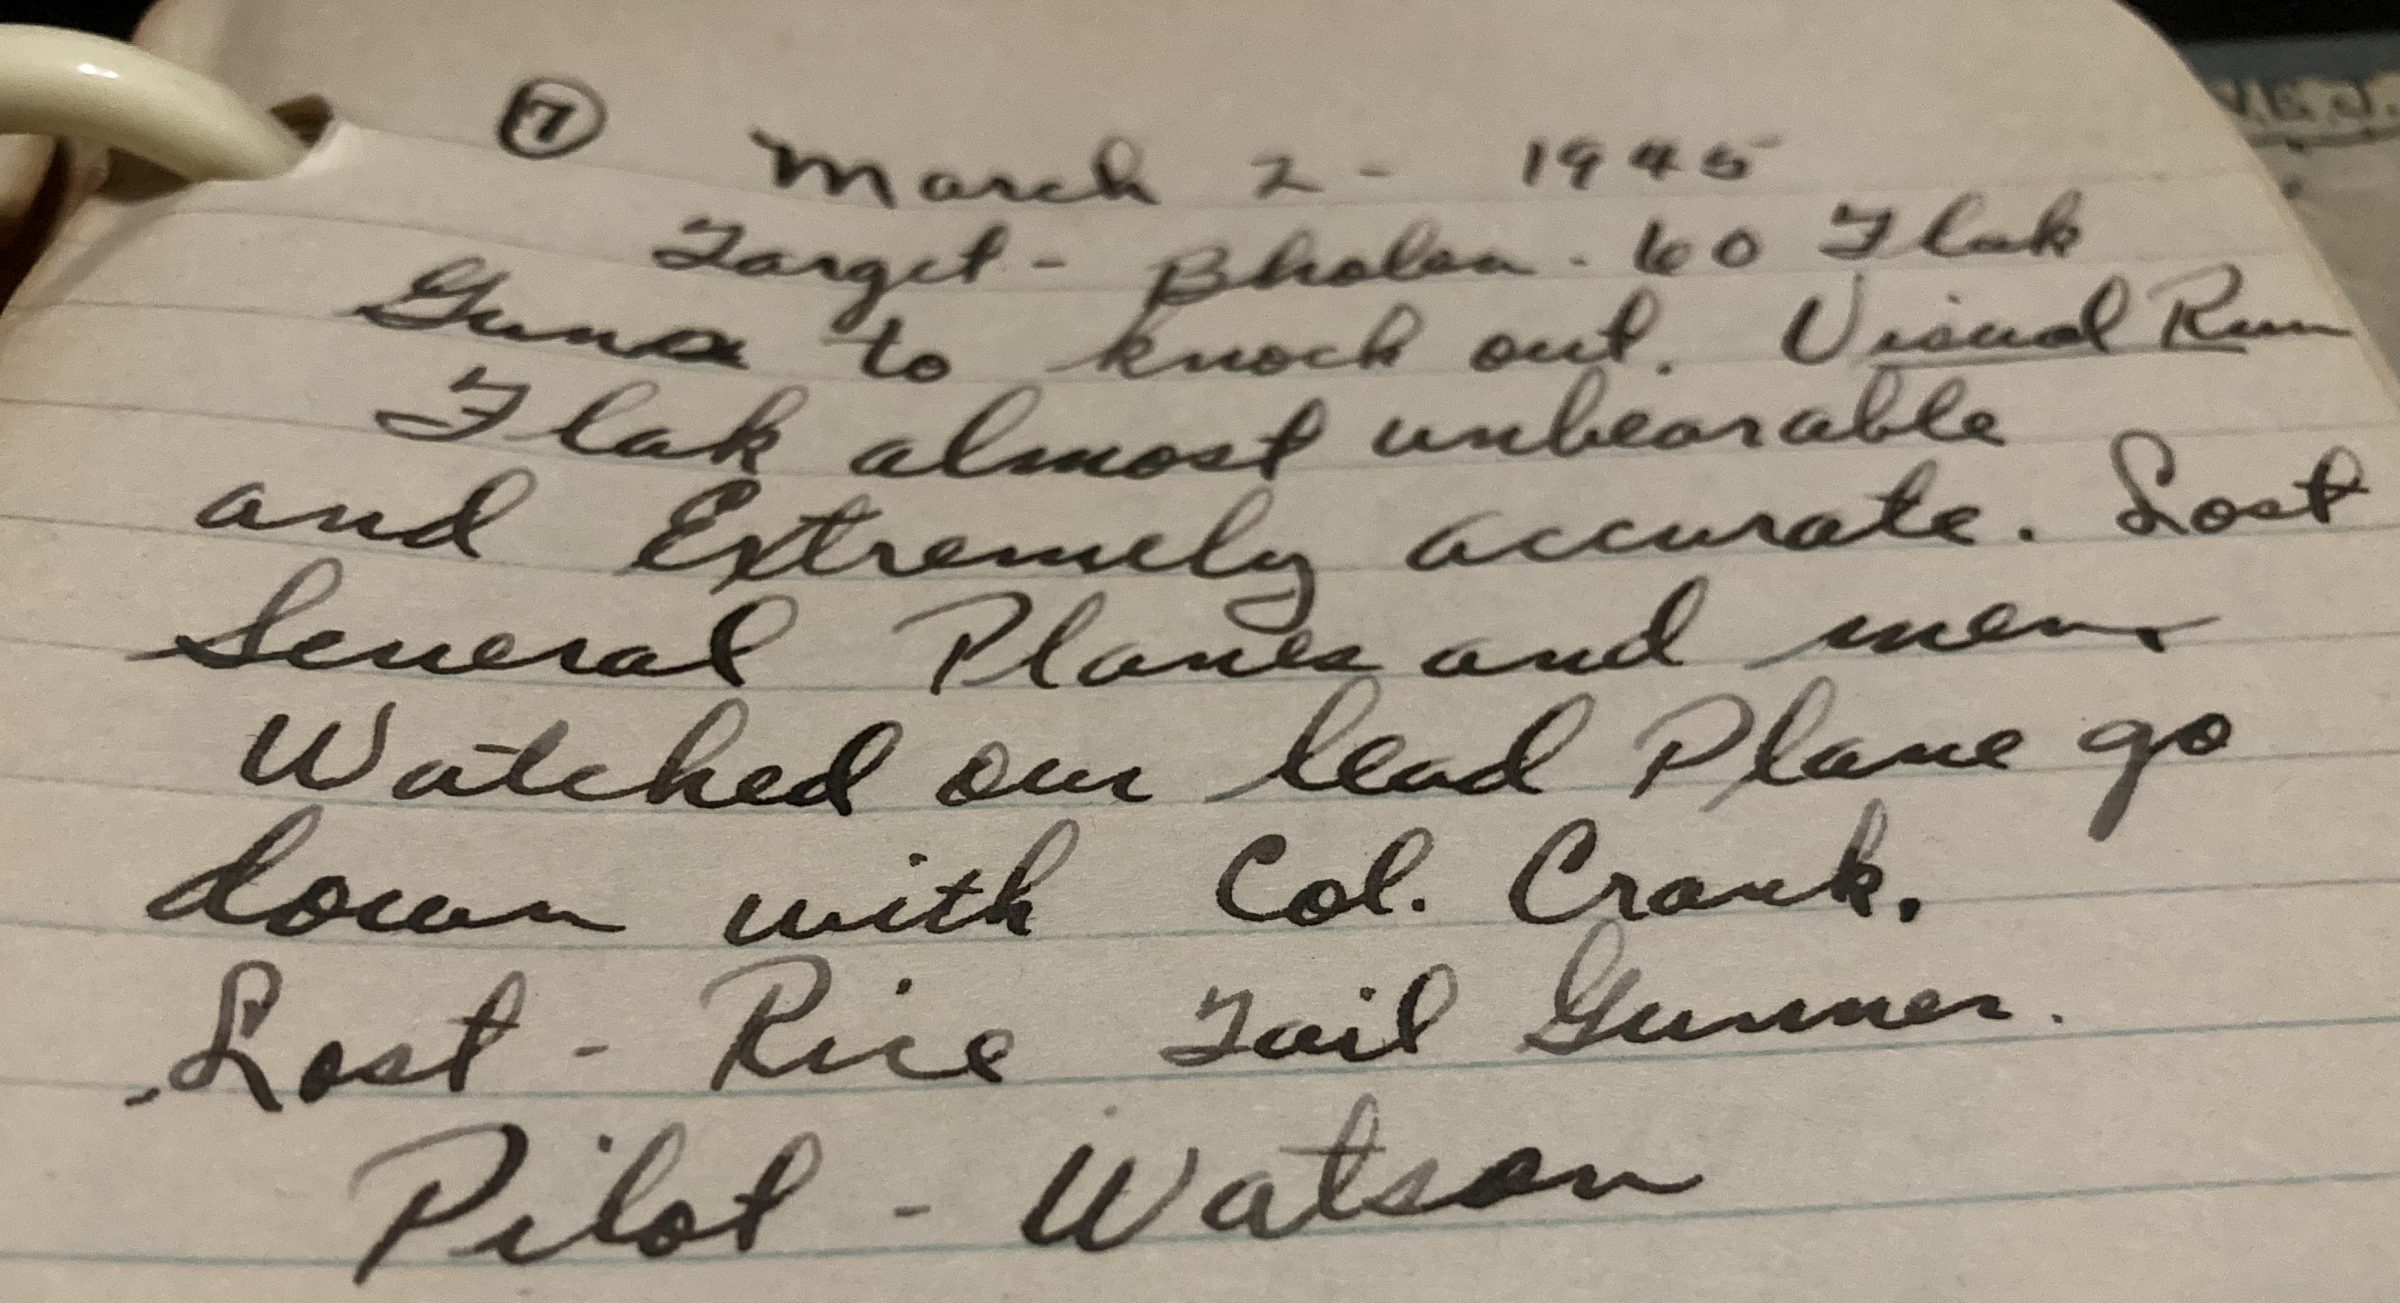 7 March 2 - 1945
Target - Bholen. 60 Flak
Guns to knock out. Visual Run
Flak almost unbearable
and Extremely accurate. Lost
Several Planes and men.
Watched our lead Plane go
down with Col. Crank.
Lost - Rice Tail Gunner.
Pilot - Watson